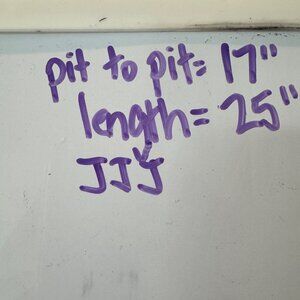 pit to pit= 17"
length= 25"
JJY